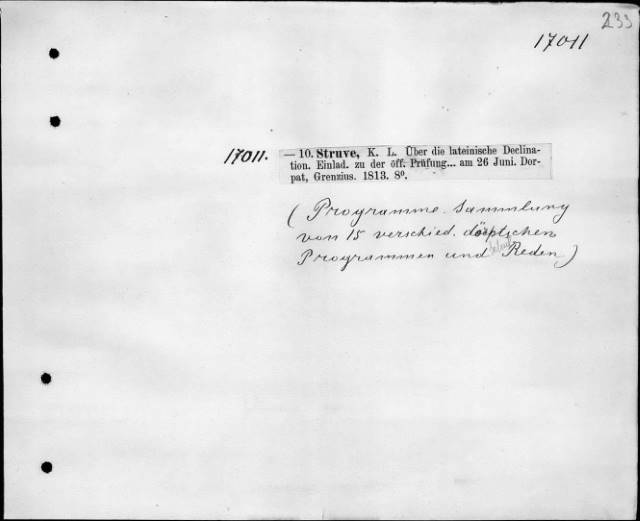 233
17011
17011.
— 10. Struve, K. L. Über die lateinische Declina-
tion. Einlad. zu der öff. Prüfung... am 26 Juni. Dor-
pat, Grenzius. 1813. 8º.
(Programme. Sammlung
von 15 verschied.
Programmen und Reden)